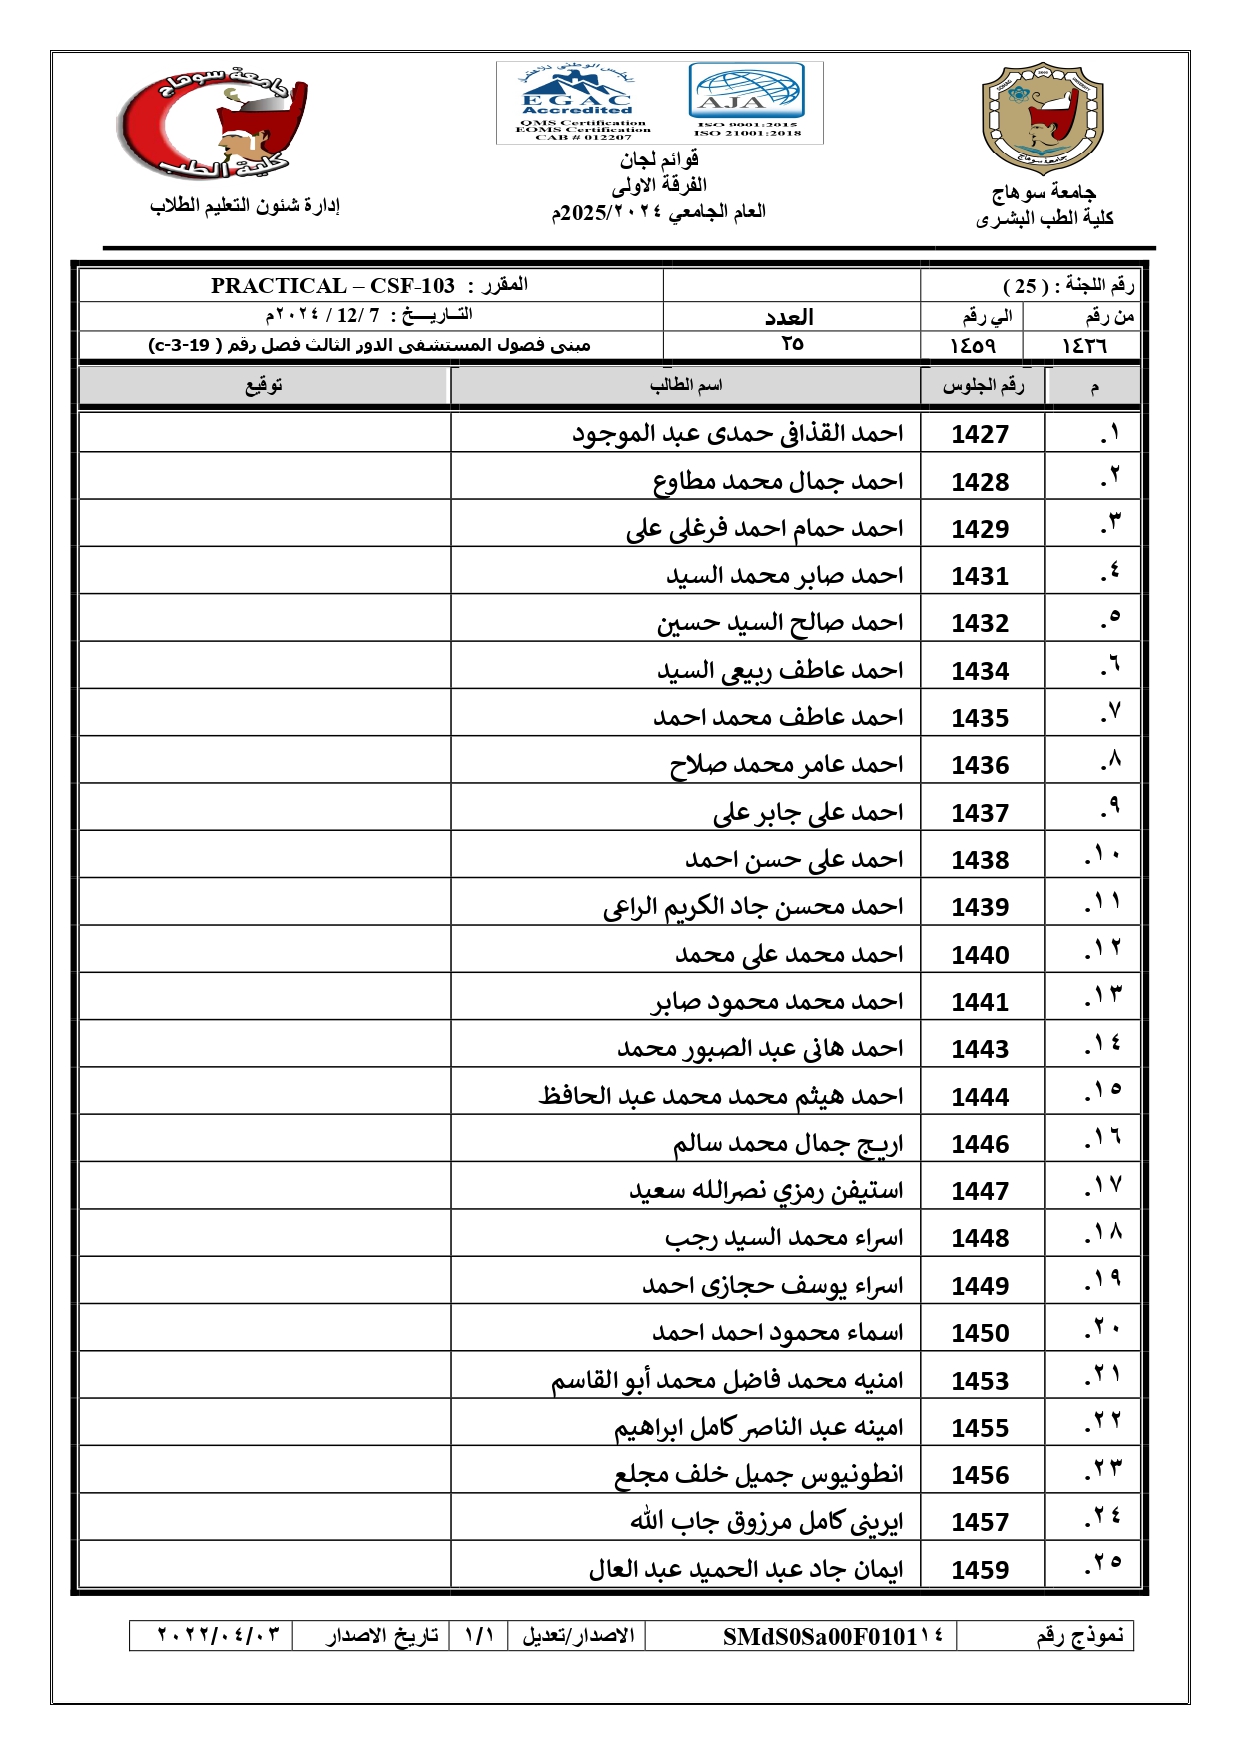 جامعة سوهاج
كلية الطب البشرى
المجلس الوطني للاعتماد
EGAC
Accredited
QMS Certification
EOMS Certification
CAB # 012207
AJA
ISO 9001:2015
ISO 21001:2018
قوائم لجان
الفرقة الاولى
العام الجامعي ٢٠٢٤/2025م
جامعة سوهاج
كلية الطب
إدارة شئون التعليم الطلاب
رقم اللجنة : ( 25 ) المقرر : PRACTICAL – CSF-103
من رقم الي رقم العدد التــاريــــخ : 7 /12 / ٢٠٢٤م
١٤٢٦ ١٤٥٩ ٢٥ مبنى فصول المستشفى الدور الثالث فصل رقم ( c-3-19)
م رقم الجلوس اسم الطالب توقيع
١. 1427 احمد القذافى حمدى عبد الموجود
٢. 1428 احمد جمال محمد مطاوع
٣. 1429 احمد حمام احمد فرغلى على
٤. 1431 احمد صابر محمد السيد
٥. 1432 احمد صالح السيد حسين
٦. 1434 احمد عاطف ربيعى السيد
٧. 1435 احمد عاطف محمد احمد
٨. 1436 احمد عامر محمد صلاح
٩. 1437 احمد على جابر على
١٠. 1438 احمد على حسن احمد
١١. 1439 احمد محسن جاد الكريم الراعى
١٢. 1440 احمد محمد على محمد
١٣. 1441 احمد محمد محمود صابر
١٤. 1443 احمد هانى عبد الصبور محمد
١٥. 1444 احمد هيثم محمد محمد عبد الحافظ
١٦. 1446 اريج جمال محمد سالم
١٧. 1447 استيفن رمزي نصرالله سعيد
١٨. 1448 اسراء محمد السيد رجب
١٩. 1449 اسراء يوسف حجازى احمد
٢٠. 1450 اسماء محمود احمد احمد
٢١. 1453 امنيه محمد فاضل محمد أبو القاسم
٢٢. 1455 امينه عبد الناصر كامل ابراهيم
٢٣. 1456 انطونيوس جميل خلف مجلع
٢٤. 1457 ايرينى كامل مرزوق جاب الله
٢٥. 1459 ايمان جاد عبد الحميد عبد العال
نموذج رقم SMdS0Sa00F0101١٤ الاصدار/تعديل ١/١ تاريخ الاصدار ٢٠٢٢/٠٤/٠٣